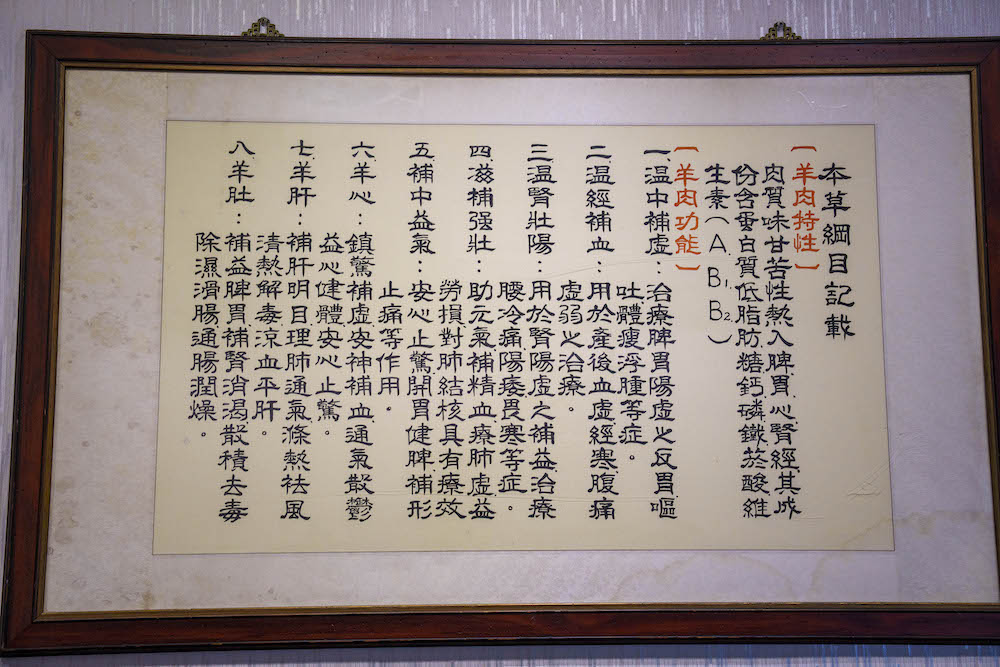 本草綱目記載
〔羊肉特性〕
肉質味甘苦性熱入脾胃心腎經其成
份含蛋白質低脂肪.糖鈣磷鐵菸酸維
生素(A.B₁.B₂.)
〔羊肉功能〕
一.溫中補虛:治療脾胃陽虛之反胃嘔
吐體瘦浮腫等症。
二溫經補血:用於產後血虛經寒腹痛
虛弱之治療。
三溫腎壯陽:用於腎陽虛之補益治療
腰冷痛陽痿畏寒等症。
四滋補强壯:助元氣補精血療肺虛益
勞損對肺結核具有療效
五補中益氣:安心止驚開胃健脾補形
止痛等作用.
六羊心:鎮驚補虛安神補血.通氣散鬱
益心健體安心止驚。
七.羊肝:補肝明目理肺通氣滌熱袪風
清熱解毒涼血平肝.
八羊肚:補益脾胃補腎消渴散積去毒
除濕滑腸通腸潤燥。